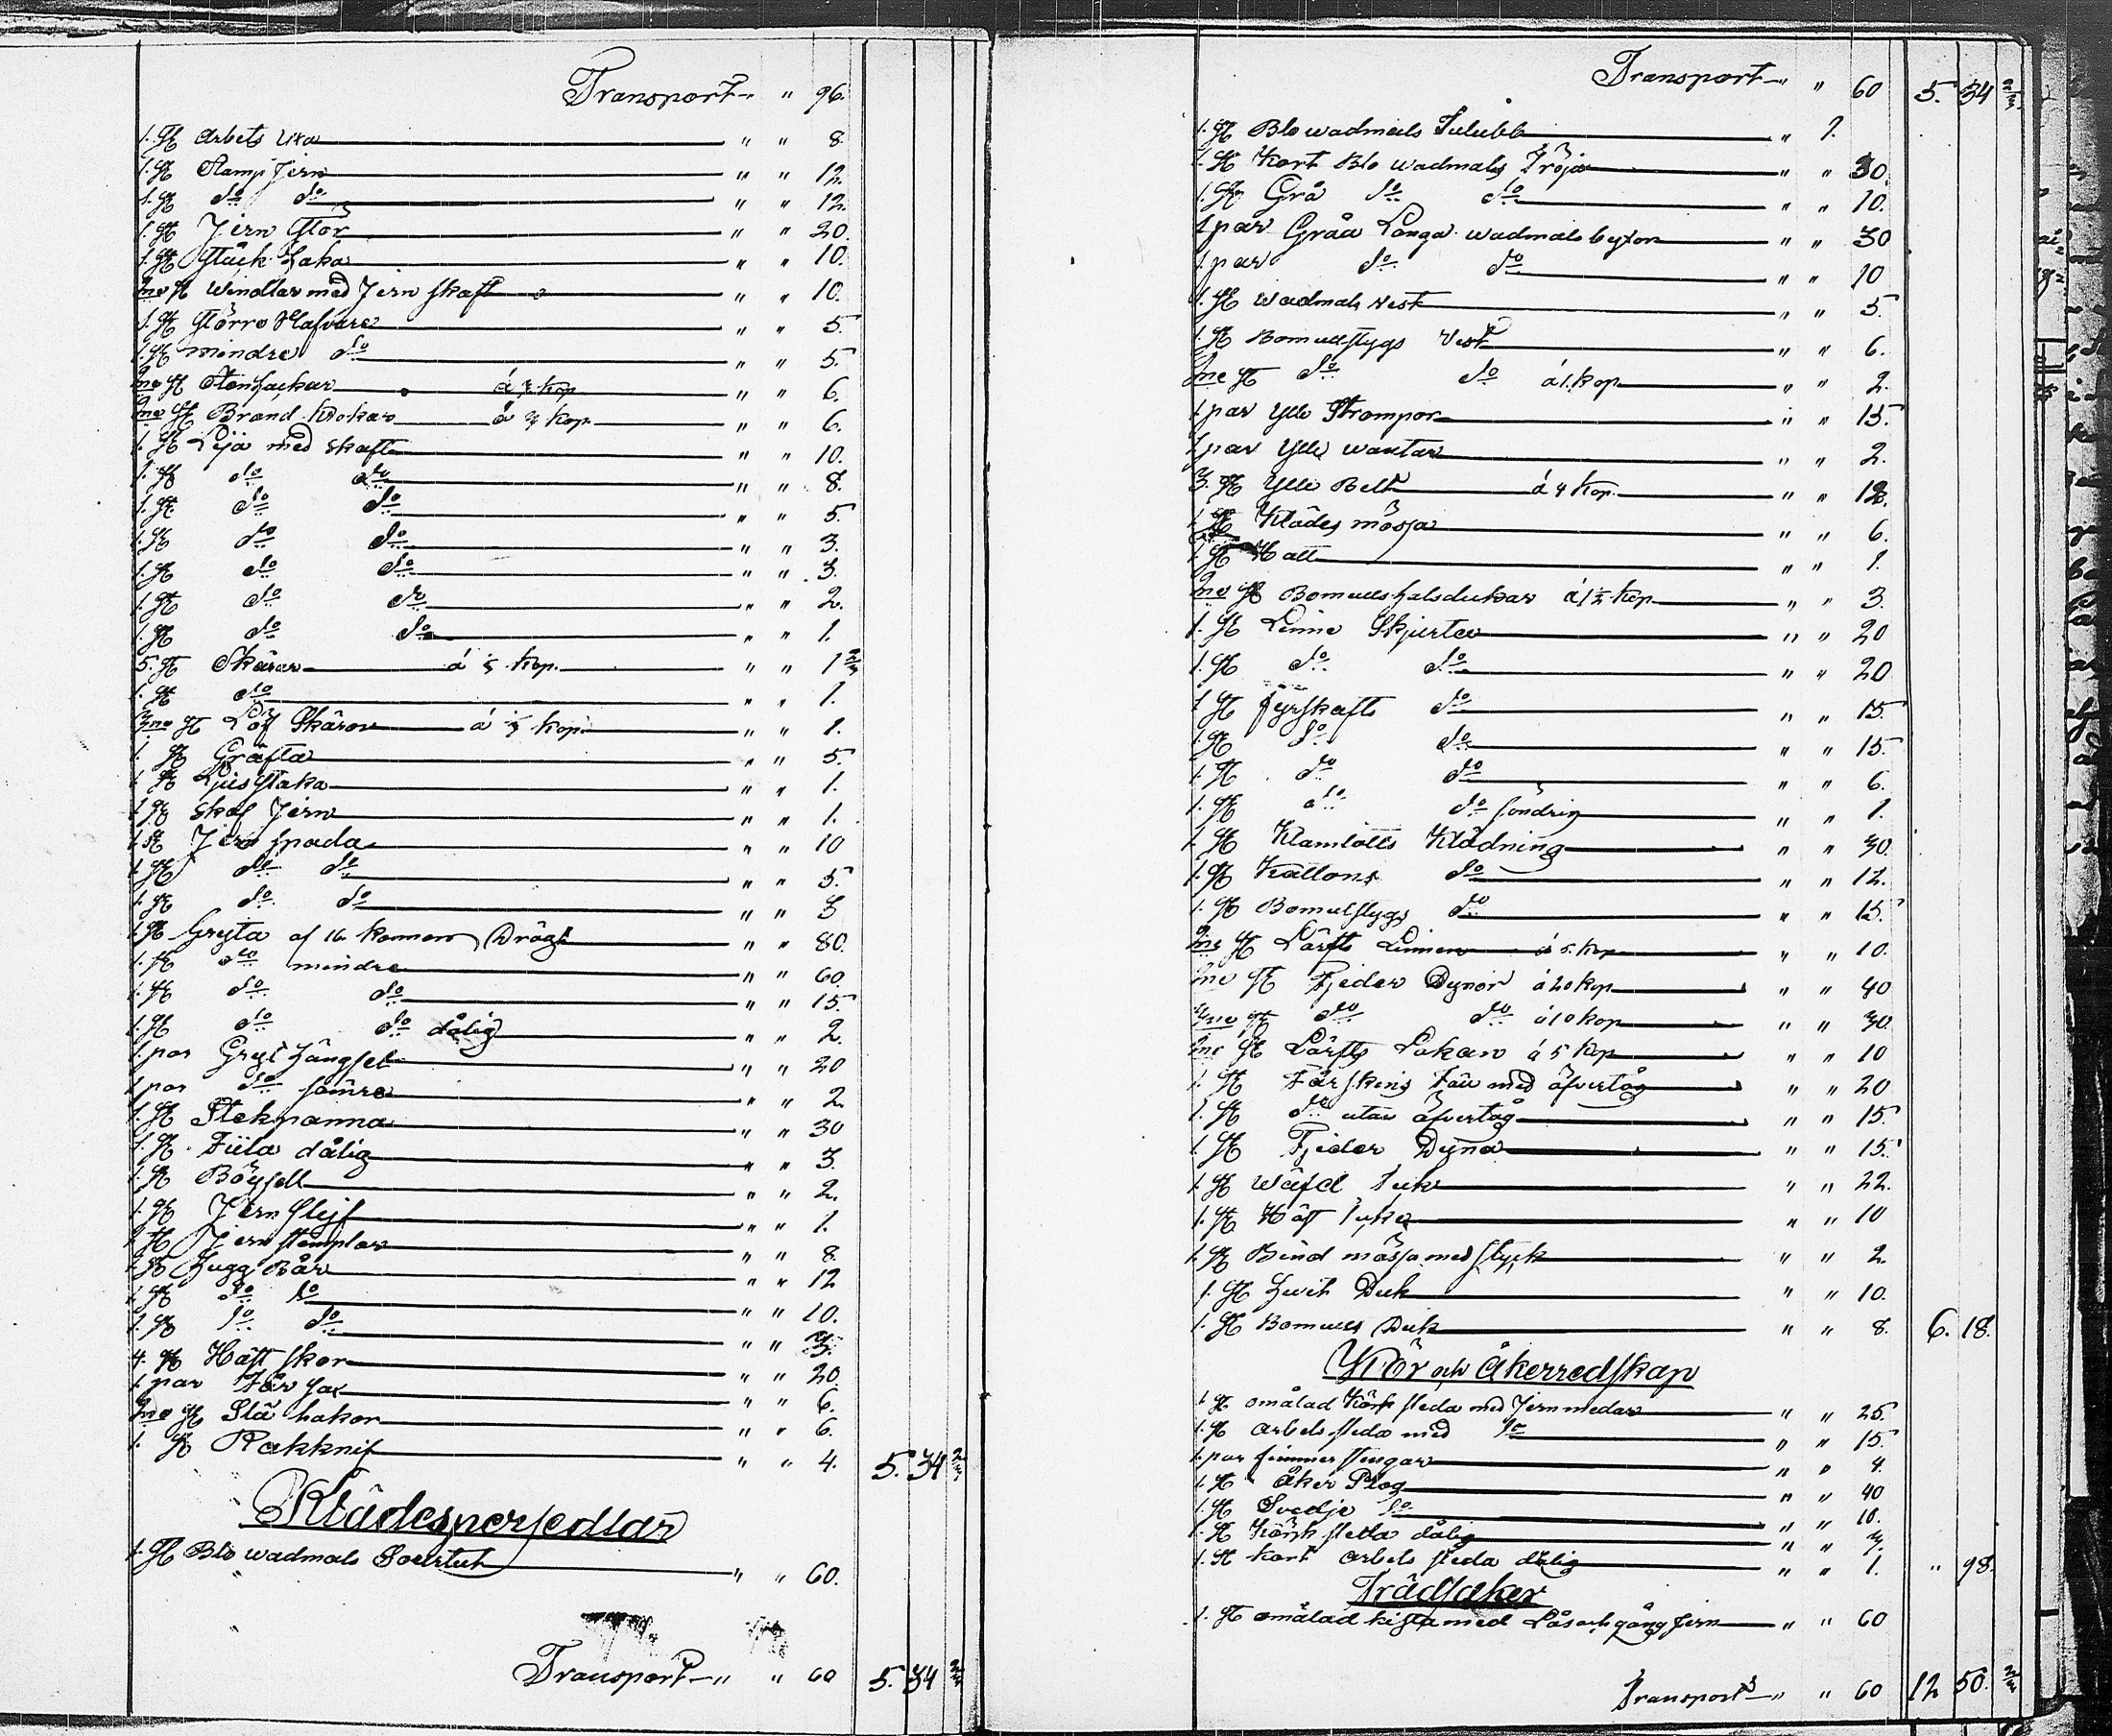 Transport " " 96.
1. St Arbets Uxa " " 8.
1. St Stamp Jern " " 12.
1. St do do " " 12.
1. St Jern Stör " " 20.
1. St Stäck haka " " 10.
2ne St Windlar med Jern skaft " " 10.
1. St Större Nafvare " " 5.
1. St mindre do " " 5.
2ne St Stenhackar á 3 kop " " 6.
2ne St Brand krokar á 3 kop " " 6.
1. St Lija med skaft " " 10.
1. St do do " " 8.
1. St do do " " 5.
1. St do do " " 3.
1. St do do " " 3.
1. St do do " " 2.
1. St do do " " 1.
5. St Skäror á 1/3 kop. " " 1 2/3
1. St do " " 1.
3ne St Löf Skäror á 1/3 kop " " 1.
1. St Gräfta " " 5.
1. St Ljus Staka " " 1.
1. St Skaf Jern " " 1.
1. St Jern spada " " 10
1. St do do " " 5.
1. St do do " " 3
1. St Gryta af 16 kannors Drägt " " 80.
1. St do mindre " " 60.
1. St do do " " 15.
1. St do do dålig " " 2.
1. par Gryt hängsel " " 20
1. par do sämre " " 2.
1. St Stekpanna " " 30
1. St Fiila dålig " " 3.
1. St Böysell " " 2.
1. St Jern Slejf " " 1.
2 St Jern Stemplar " " 8.
1. St hugg Bår " " 12
1. St do do " " 10.
1. St do do " " 3.
4. St Häst skor " " 20.
1. par Får sax " " 6.
2ne St Slä hakor " " 6.
1. St Rakknif " " 4. 5. 34 2/3
Klädespersedlar
1. St Blå wadmals Sourtut " " 60.
Transport " " 60 5. 34 2/3
Transport " " 60 5. 34 2/3
1. St Blå wadmals Tulubb " 1.
1. St Kort Blå wadmals Tröja " " 30.
1. St Grå do do " " 10.
1 par Gråa Långa wadmals byxor " " 30
1. par do do " " 10
1. St wadmals west " " 5.
1. St Bomullstygs Vest " " 6.
2ne St do do á 1. kop " " 2.
1. par ylle Strompor " " 15.
1 par ylle wantar " " 2.
3. St ylle Belt á 4 kop. " " 12.
1. St Klädes mössa " " 6.
1. St Hatt " " 1.
2ne St Bomulls halsdukar á 1 1/2 kop " " 3.
1. St Linne Skjorta " " 20
1. St do do " " 20
1 St fyrskafts do " " 15.
1. St do do " " 15.
1. St do do " " 6.
1. St do do söndrig " " 1.
1. St Klamlotts Klädning " " 30.
1. St Kattons do " " 12.
1. St Bomulstygs do " " 15.
2ne St Lärfts Linnen á 5. kop " " 10.
2ne St Fjeder Dynor á 20 kop " " 40
3ne St do do á 10 kop " " 30.
2ne St Lärfts Lakan á 5 kop " " 10
1. St Fårskins Fäll med öfvertåg " " 20
1. St do utan öfvertåg " " 15.
1. St Fjeder Dyna " " 15.
1. St wäfd Täck " " 22.
1. St Häst Täcke " " 10
1. St Bind mössa med styck " " 2.
1. St hvit Duk " " 10.
1. St Bomulls Duk " " 8. 6. 18.
Kör och Åkerredskap
1 St omålad Kör släda med Jern medar " " 25.
1. St arbets släda med do " " 15.
1. par fimmerstengar " " 4.
1. St Åker Plog " " 40
1. St Svedje do " " 10.
1. St Körk släda dålig " " 3.
1. St kort arbets släda dålig " " 1. " 98.
Trädsaker
1. St omålad kista med Lås och gång Jern " " 60
Transport " " 60 12 50. 2/3